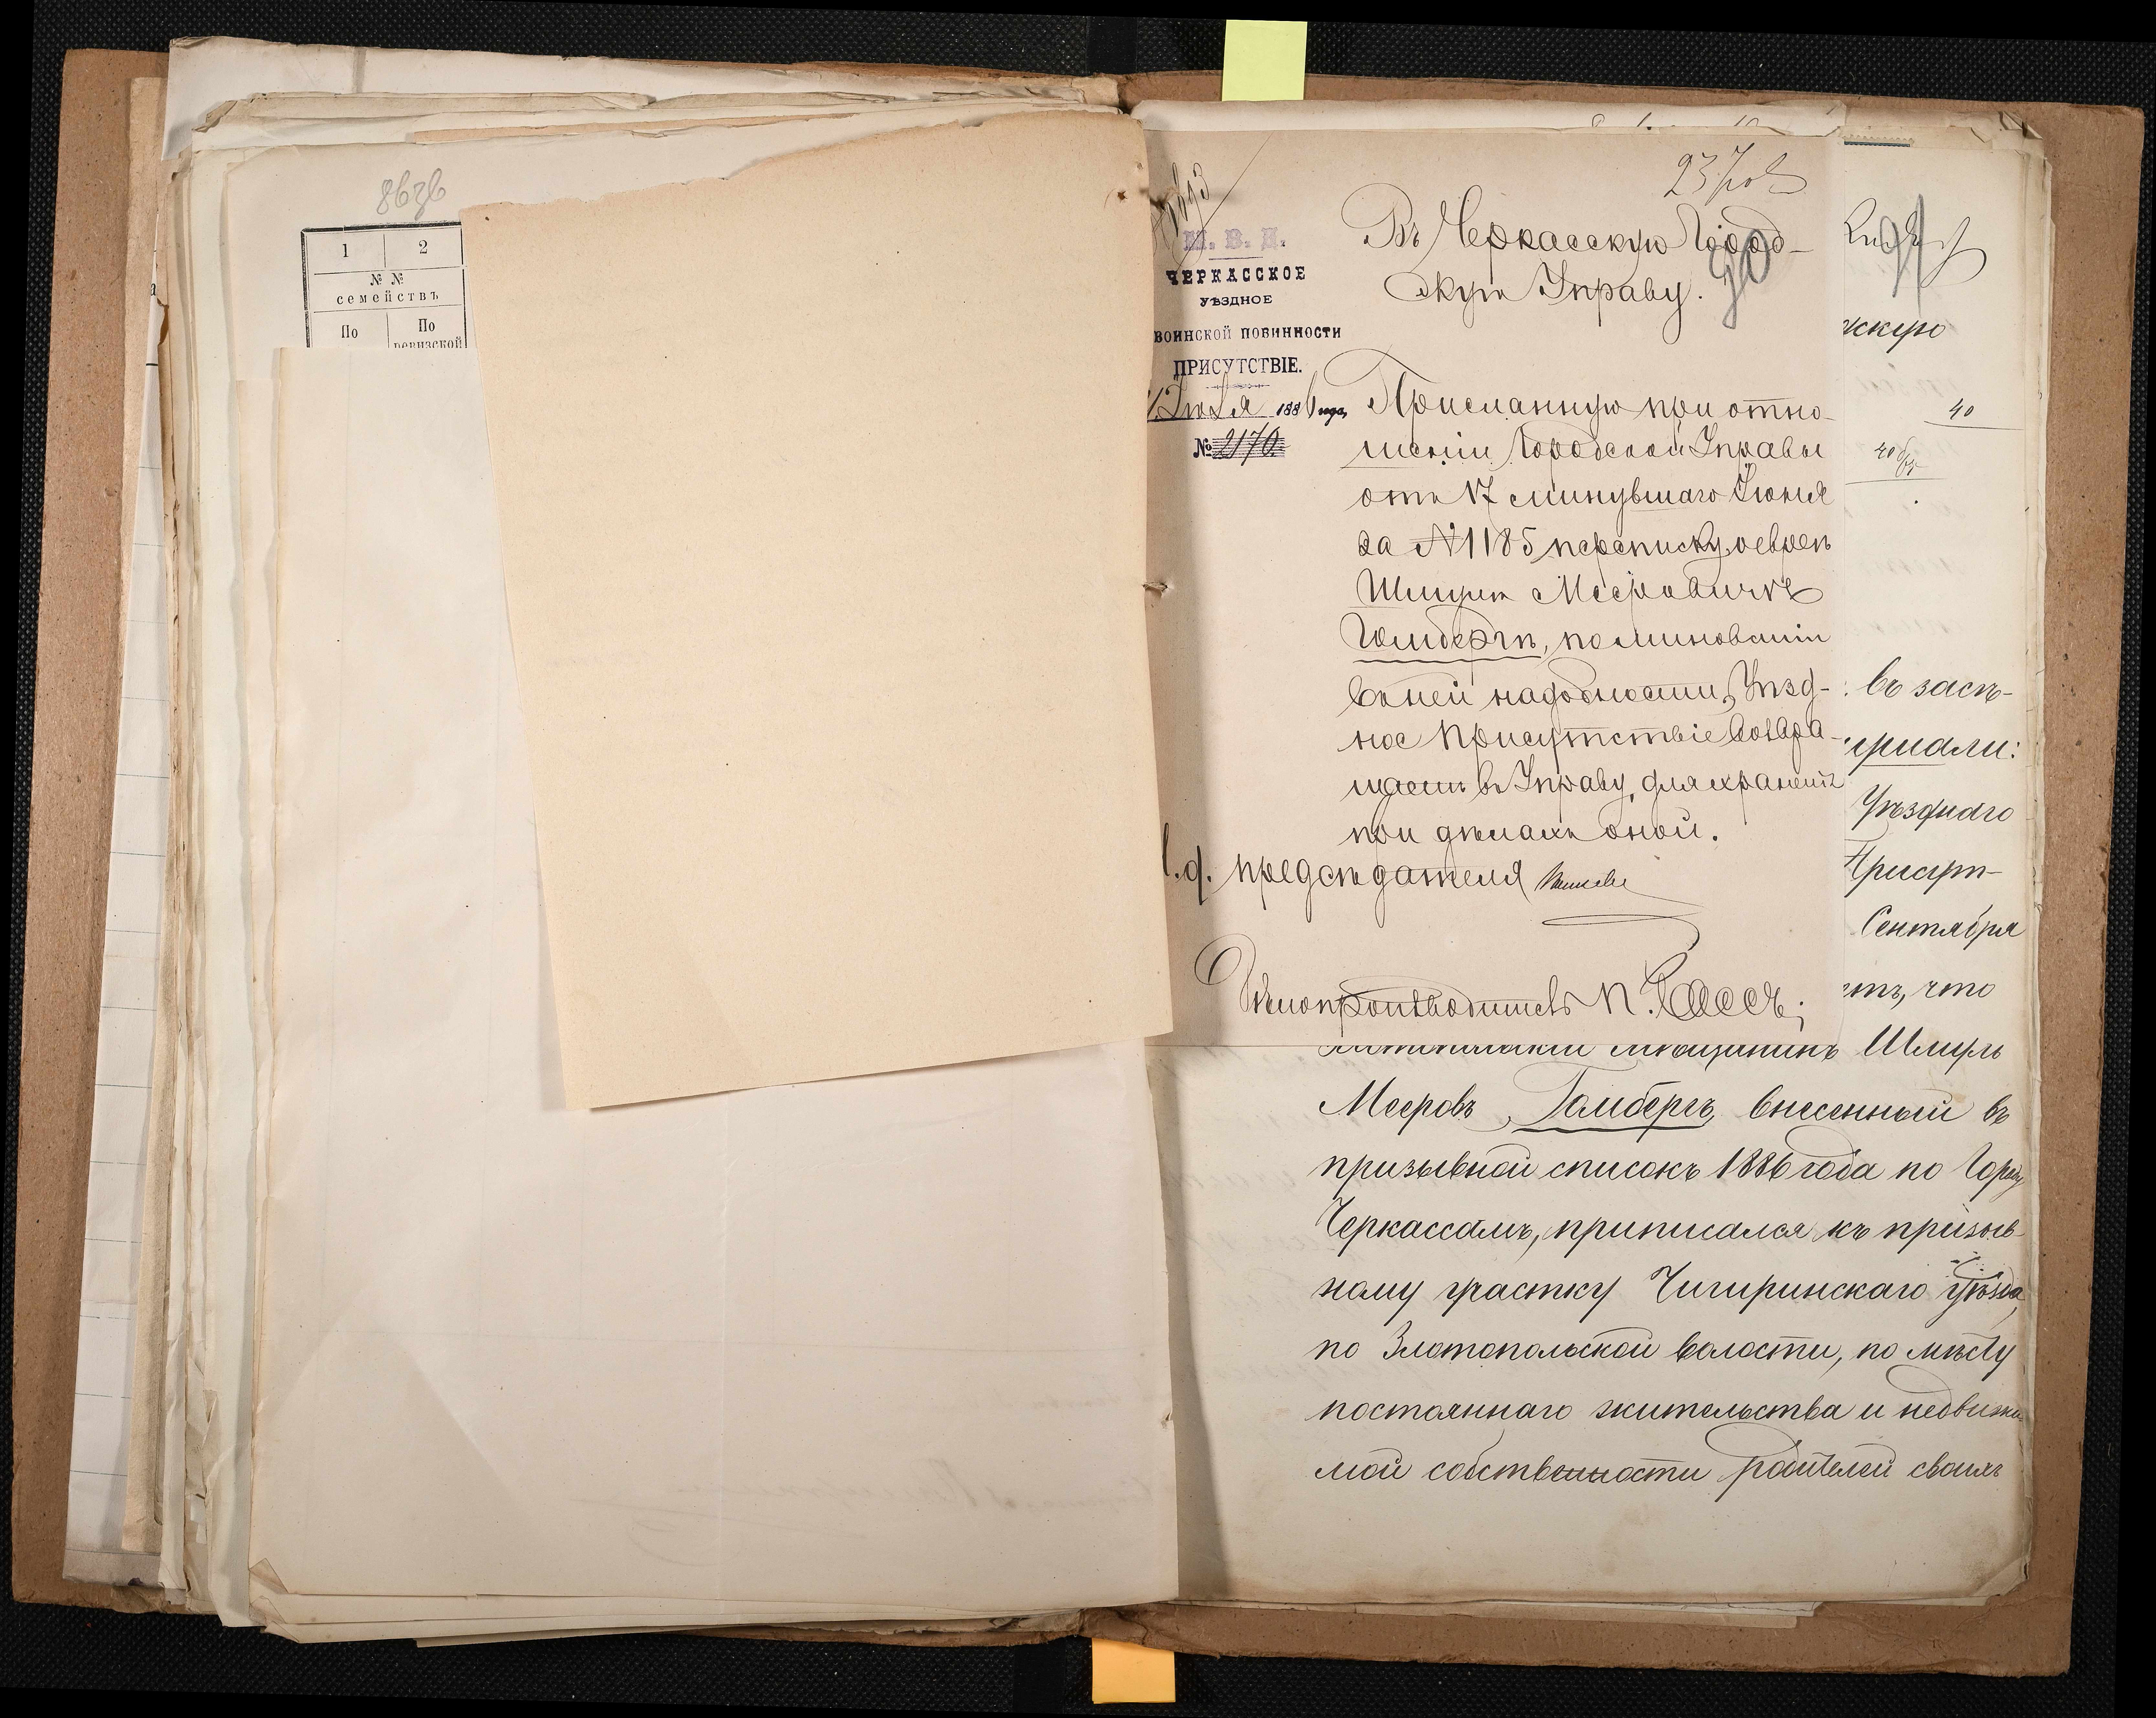 1
2
№ №
семействъ
По
По
ревизской
М. В. Д.
ЧЕРКАССКОЕ
УѢЗДНОЕ
ВОИНСКОЙ ПОВИННОСТИ
ПРИСУТСТВІЕ.
Іюля 1886 года
№ 2170
90
Въ Черкасскую Город-
скую Управу.
Присланную при отно-
шеніи Городской Управы
отъ 17 минувшаго Іюня
за №1185 переписку о евреѣ
Шмулѣ Мееровичѣ
Гомбергѣ, по минованіи
въ ней надобности, Уѣзд-
ное Присутствіе возвра-
щаетъ въ Управу, для храненія
при дѣлахъ оной.
предсѣдателя
Дѣлопроизводитель
91
скую
40
40 об
въ засѣ-
Уѣзднаго
Присут-
Сентября
что
мѣщанинъ Шмуль
Мееровъ Гомбергъ, внесенный въ
призывной списокъ 1886 года по Городу
Черкассамъ, приписался къ призыв-
ному участку Чигиринскаго уѣзда,
по Златопольской волости, по мѣсту
постояннаго жительства и недвижи
мой собственности родителей своихъ